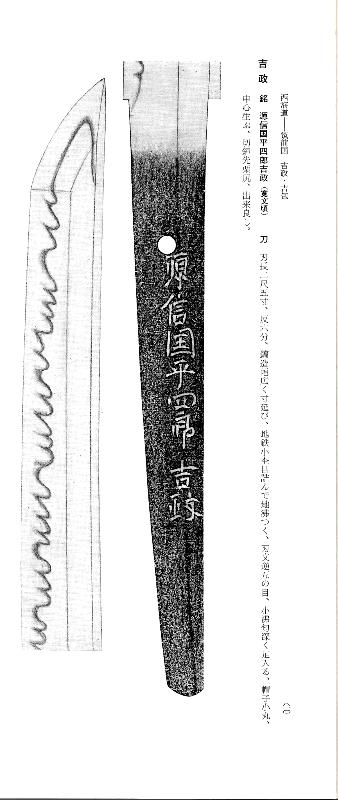 西海道――筑前国　吉政・吉次
吉政　銘　源信国平四郎吉政（寛文頃）　刀　刃長二尺五寸、反六分、鎬造地広く寸延び、地鉄小杢目詰んで地沸つく、刃文逆互の目、小沸匂深く足入る、帽子小丸、
中心生ぶ、切鑢先栗尻、出来良し。
源信国平四郎吉政